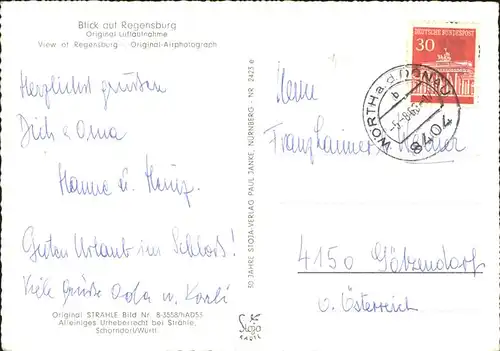 Blick auf Regensburg
Original Luftaufnahme
View of Regensburg · Original-Airphotograph
Herzlichst grüßen
Dich & Oma
Hanne u. Heinz.
Guten Urlaub im Schloß!
Viele Grüße u. Karli
Original STRÄHLE Bild Nr.
Alleiniges Urheberrecht bei Strähle,
Schorndorf/Württ.
50 JAHRE STOJA-VERLAG PAUL JANKE, NÜRNBERG - NR 2425 e
Stoja
DEUTSCHE BUNDESPOST
30
WÖRTH a.d. DONAU
b
8404
Franz
4150 Götzendorf
O. Österreich